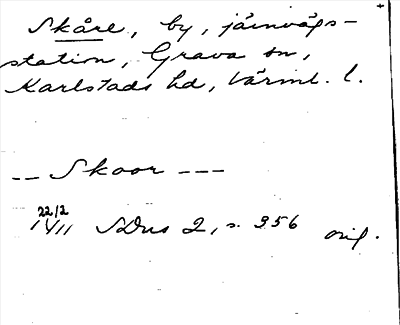 Skåre, by, järnvägs-
station, Grava sn,
Karlstads hd, Värml. l.
-- Skoor ---
22/2 1411 SDns 2, s. 356 orig.